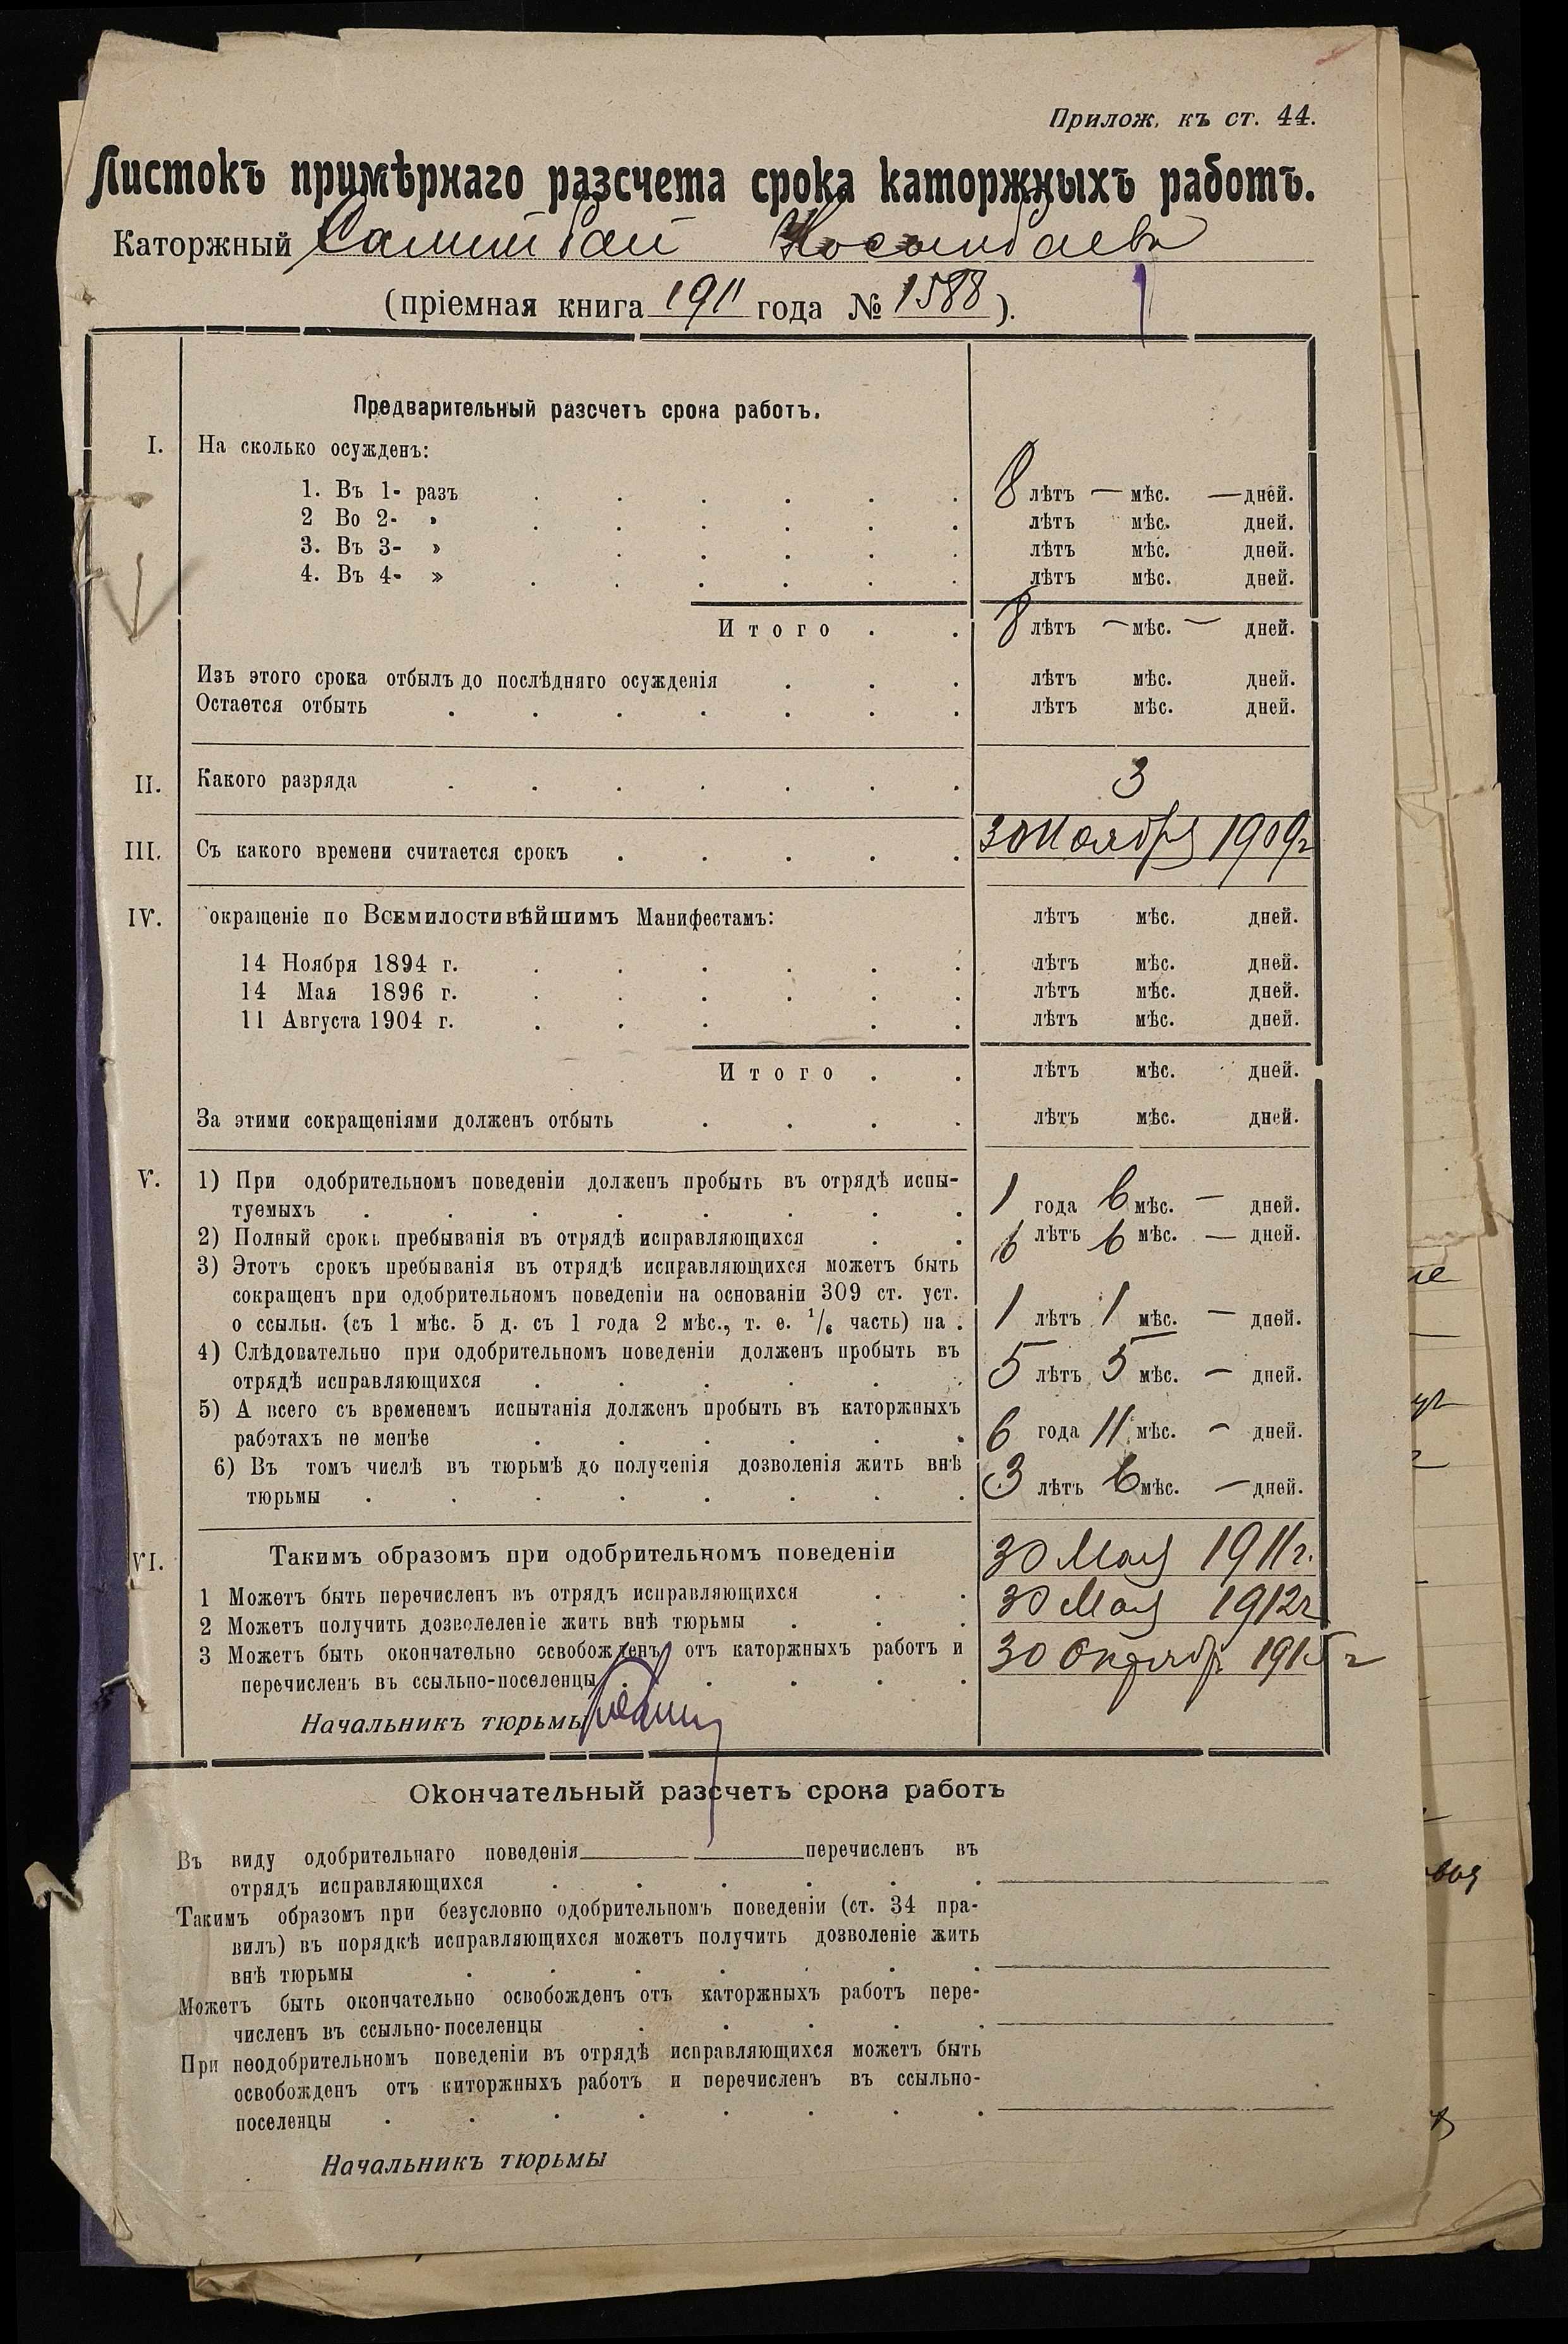 Прилож. къ ст. 44.
Листокъ примѣрнаго разсчета срока каторжныхъ работъ.
Каторжный
(пріемная книга 1911 года № 1588).
Предварительный разсчетъ срока работъ.
I. На сколько осужденъ:
1. Въ 1- разъ 8 лѣтъ — мѣс. — дней.
2 Во 2- » лѣтъ мѣс. дней.
3. Въ 3- » лѣтъ мѣс. дней.
4. Въ 4- » лѣтъ мѣс. дней.
Итого 8 лѣтъ — мѣс. — дней.
Изъ этого срока отбылъ до послѣдняго осужденія лѣтъ мѣс. дней.
Остается отбыть лѣтъ мѣс. дней.
II. Какого разряда 3
III. Съ какого времени считается срокъ 30 Ноября 1909 г
IV. окращеніе по Всемилостивѣйшимъ Манифестамъ: лѣтъ мѣс. дней.
14 Ноября 1894 г. лѣтъ мѣс. дней.
14 Мая 1896 г. лѣтъ мѣс. дней.
11 Августа 1904 г. лѣтъ мѣс. дней.
Итого лѣтъ мѣс. дней.
За этими сокращеніями долженъ отбыть лѣтъ мѣс. дней.
V. 1) При одобрительномъ поведеніи долженъ пробыть въ отрядѣ испы-
туемыхъ 1 года 6 мѣс. — дней.
2) Полный срокъ пребыванія въ отрядѣ исправляющихся 6 лѣтъ 6 мѣс. — дней.
3) Этотъ срокъ пребыванія въ отрядѣ исправляющихся можетъ быть
сокращенъ при одобрительномъ поведеніи на основаніи 309 ст. уст.
о ссыльн. (съ 1 мѣс. 5 д. съ 1 года 2 мѣс., т. е. 1/6 часть) на 1 лѣтъ 1 мѣс. — дней.
4) Слѣдовательно при одобрительномъ поведеніи долженъ пробыть въ
отрядѣ исправляющихся 5 лѣтъ 5 мѣс. — дней.
5) А всего съ временемъ испытанія долженъ пробыть въ каторжныхъ
работахъ не менѣе 6 года 11 мѣс. — дней.
6) Въ томъ числѣ въ тюрьмѣ до полученія дозволенія жить внѣ
тюрьмы 3 лѣтъ 6 мѣс. — дней.
VI. Такимъ образомъ при одобрительномъ поведеніи
1 Можетъ быть перечисленъ въ отрядъ исправляющихся 30 Мая 1911 г.
2 Можетъ получить дозволеленіе жить внѣ тюрьмы 30 Мая 1912 г
3 Можетъ быть окончательно освобожденъ отъ каторжныхъ работъ и
перечисленъ въ ссыльно-поселенцы 30 Октябр 1915 г
Начальникъ тюрьмы
Окончательный разсчетъ срока работъ
Въ виду одобрительнаго поведенія перечисленъ въ
отрядъ исправляющихся
Такимъ образомъ при безусловно одобрительномъ поведеніи (ст. 34 пра-
вилъ) въ порядкѣ исправляющихся можетъ получить дозволеніе жить
внѣ тюрьмы
Можетъ быть окончательно освобожденъ отъ каторжныхъ работъ пере-
численъ въ ссыльно-поселенцы
При неодобрительномъ поведеніи въ отрядѣ исправляющихся можетъ быть
освобожденъ отъ киторжныхъ работъ и перечисленъ въ ссыльно-
поселенцы
Начальникъ тюрьмы